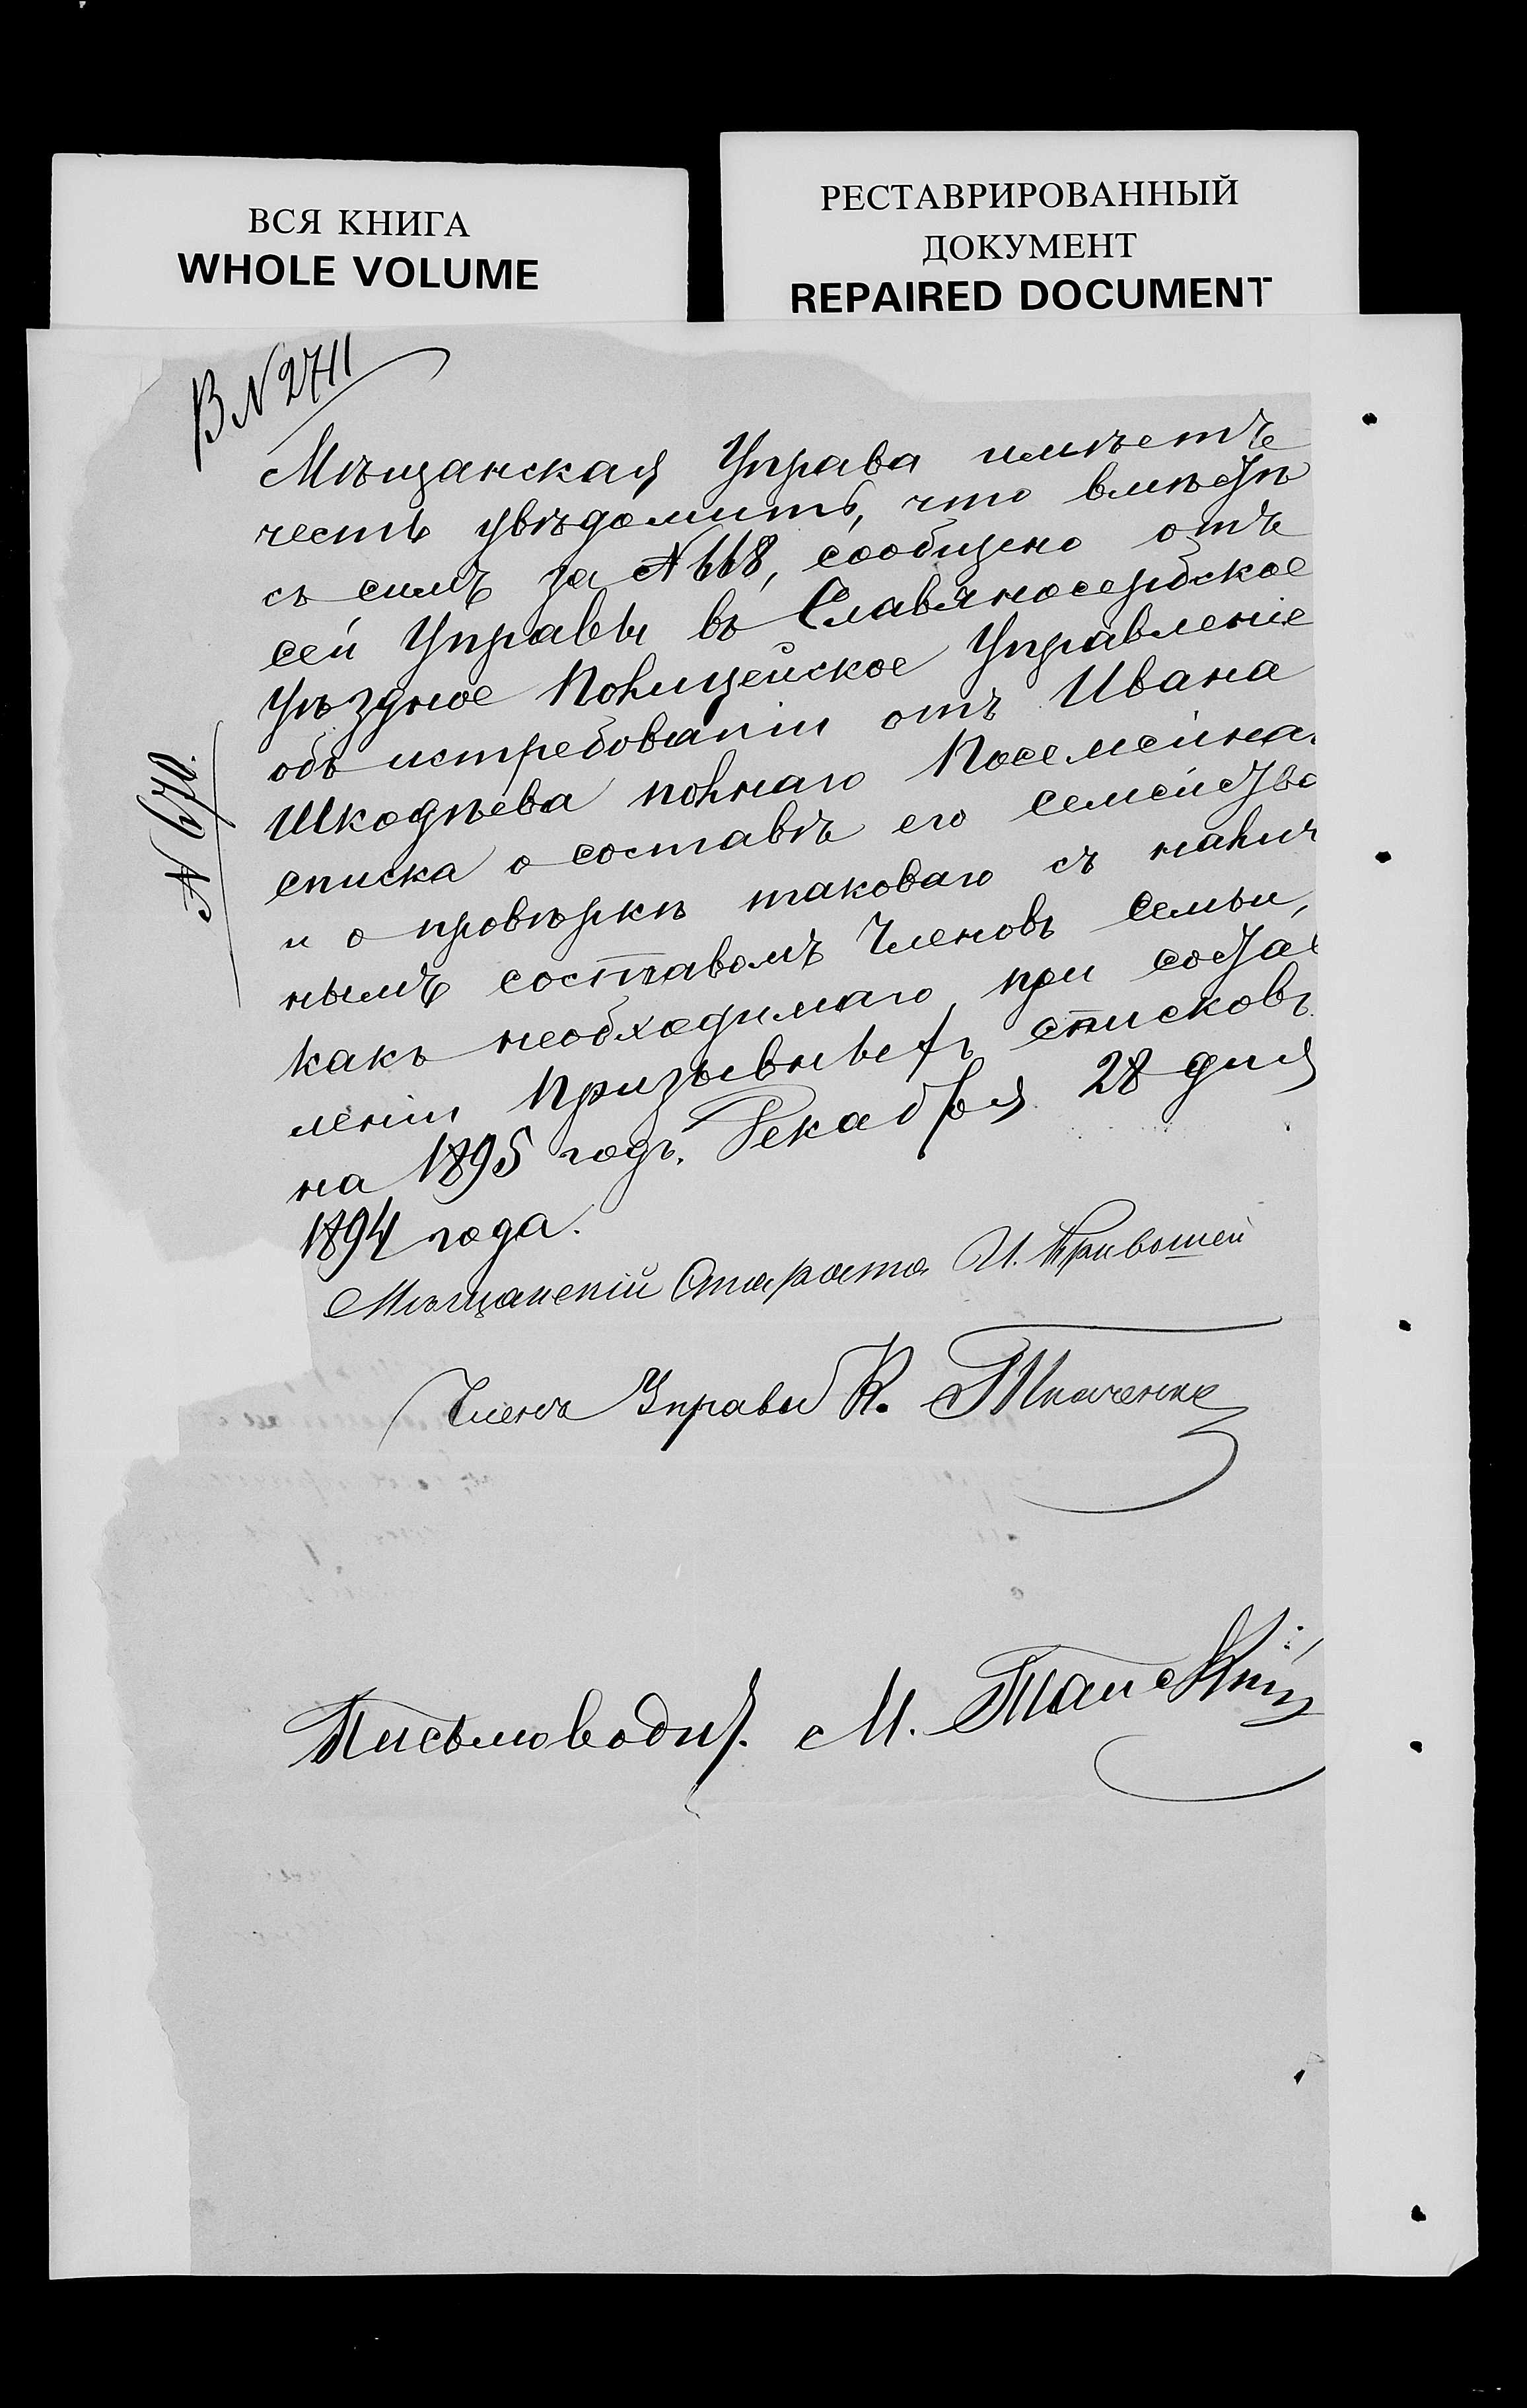 ВСЯ КНИГА
WHOLE VOLUME
РЕСТАВРИРОВАННЫЙ
ДОКУМЕНТ
REPAIRED DOCUMENT
В № 2711
Мѣщанская Управа имѣетъ
честь увѣдомить, что вмѣстѣ
съ симъ за № 668, сообщено отъ
сей Управы въ Славяносербское
Уѣздное Полицейское Управленіе
объ истребованіи отъ Ивана
Шкодѣева полнаго Посемейна
списка о составѣ его семейства
и о провѣркѣ таковаго съ налич
нымъ составомъ Членовъ Семьи,
какъ необходимаго при состав
леніи Призывныхъ списковъ
на 1895 годъ. Декабря 28 дня
1894 года.
№ 670.
Мѣщанскій Староста И. Кривошей
Членъ Управы К. Ткаченко
Письмоводит. М.